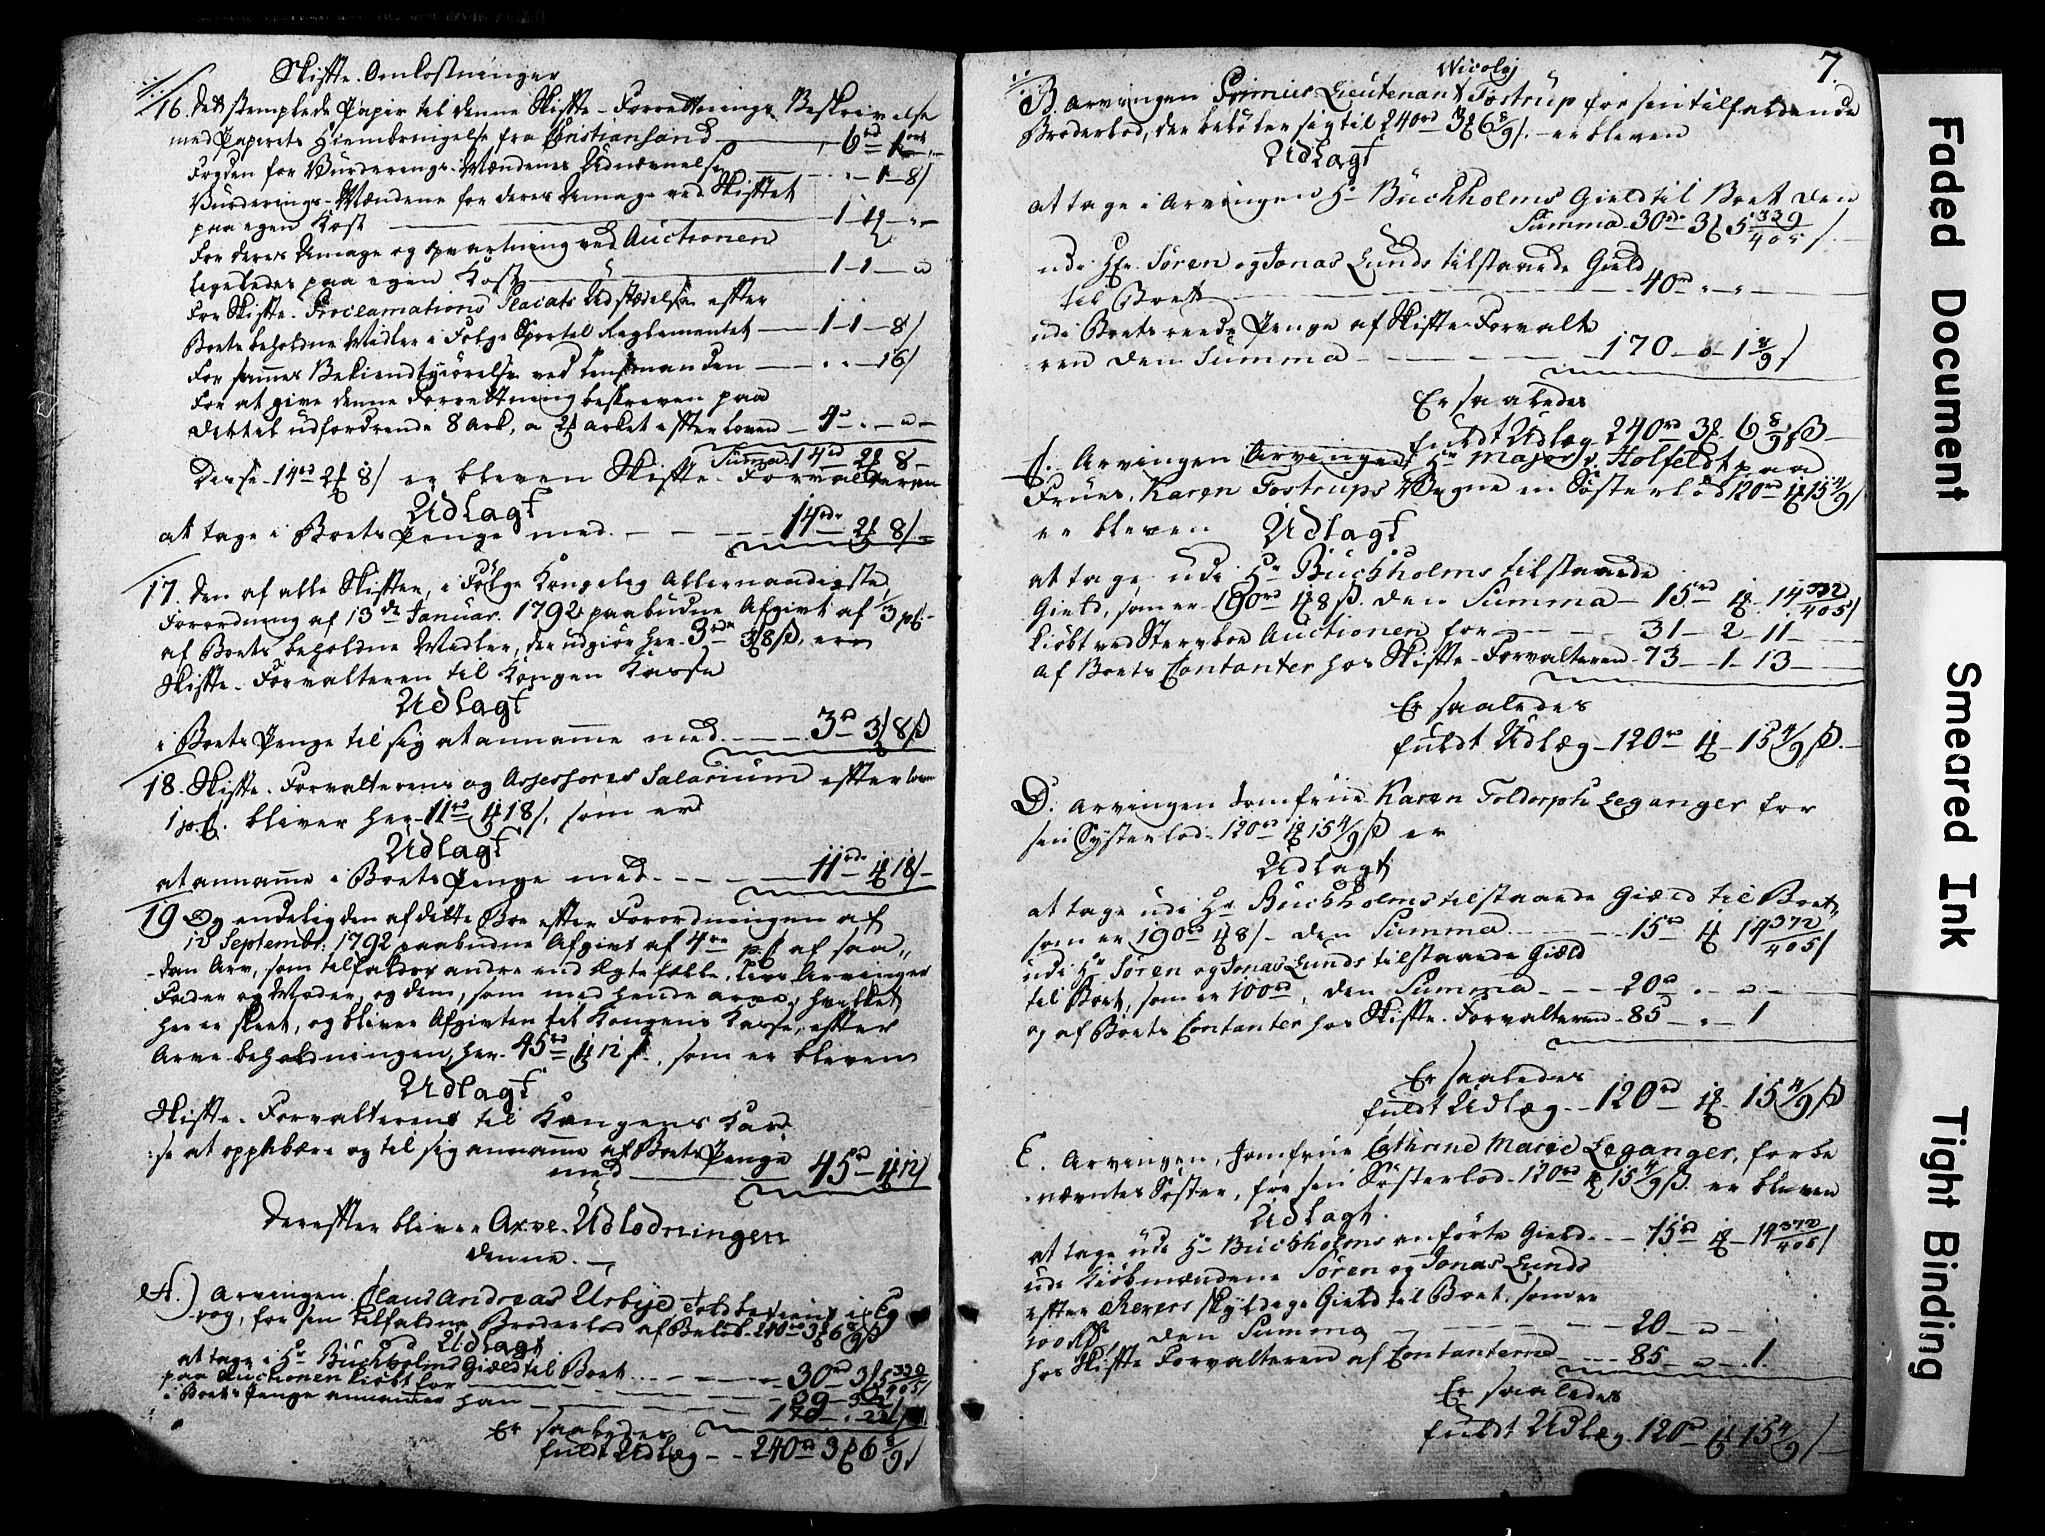 Skifte-Omkostninger
16. Det stemplede Papir til denne Skifte-Forretnings Beskrivelse
med Papirets Hiembringelse fra Christiansand — 6rd 1ort
Fogden for Vurderings-Mændenes Udnævnelse — 1 - 8/
Vurderings-Mændene for deres Umage ved Skiftet
paa egen Kost — 1 -
for deres Umage og opvartning ved Auctionen
ligeledes paa egen Kost — 1 - 1 —
For Skifte-Proclamations Placats Udstædelse efter
Boets beholdne Midler i Følge Sportel Reglementet — 1 - 1 - 8/
For sammes Bekiendtgiørelse ved Lensmanden — 16/
For at give denne Forretning beskreven paa
dertil udfordrende 8 Ark, a 2 arket efter loven — 4
Summa 14rd 2 8
Disse 14rd 2 8/ er bleven Skifte-Forvalteren
Udlagt
at tage i Boets Penge med — 14rdr 2 8/
17. Den af alle Skifter, i Følge Kongelig Allernaadigste
Forordning af 13de Januar. 1792 paabudne Afgivt af 1/3 pct
af Boets beholdne Midler, der udgiør her 3rdr 3 8ß, er
Skifte-Forvalteren til Kongen Kasse
Udlagt
i Boets Penge til sig at annamme med — 3rd 3 8ß
18. Skifte-Forvalterens og Assessores Salarium efter loven
1 pct. bliver her 11rd 18/, som er
Udlagt
at annamme i Boets Penge med — 11rdr 18/
19 Og endelig den af dette Boe efter Forordningen af
12 Septembr: 1792 paabudne Afgivt af 4re pct af saa-
dan Arv, som tilfalder andre end Ægtefælle, Livs Arvinger
Fader og Moder, og dem, som med hende arve, hvilket
her er skeet, og bliver Afgivten til Kongens Kasse, efter
Arve beholdningen, her 45rd 12, som er bleven
Udlagt
Skifte-Forvalteren til Kongens Kas-
se at oppebære og til sig annamme af Boets Penge
med — 45rd 12/
Derefter bliver Arve-Udlodningen
denne.
A.) Arvingen Claus Andreas Urbye Toldbetient i Eg
rog, for sin tilfaldne Broderlod af Beløb 240rd 3 6 8/9ß
Udlagt
at tage i Hr Buchholms Giæld til Boet — 30rd 3 5 339/405/
paa Auctionen kiøbt for — 39
i Boets Penge annammer han —
Er saaledes
fuldt Udlæg — 240rd 3 6 8/9/
7.
Nicolaj
B. Arvingen Primier Lieutenant Tostrup for sin tilfaldende
Broderlod, der beløber sig til 240rd 3 6 8/9/. er bleven
Udlagt
at tage i Arvingen Hr Buchholms Gield til Boet den
Summa 30rdr 3 5 339/405/
udi Hr. Søren og Jonas Lunds tilstaaende Gield
til Boet — 40rd
udi Boets reede Penge af Skifte-Forvalte
ren den Summa — 170 - 1 8/9/
Er saaledes
fuldt Udlæg 240rd 3 6 8/9 ß
Arvingen Arvingen Hr Major v. Holfeldt paa
Frues, Karen Tostrups Vegne en Søsterlod 120rd 1 15 4/9/
er bleven Udlagt
at tage udi Hr Buchholms tilstaaende
Gield, som er 190rd 8ß. den Summa — 15rd 1 14 372/405/
kiøbt ved Stervboe Auctionen for — 31 - 2 - 11
af Boets Contanter hos Skifte-Forvalteren — 73 - 1 - 13
Er saaledes
fuldt Udlæg — 120rd 1 15 4/9 ß.
D. Arvingen Jomfrue Karen Toldorph Leganger for
sin Systerlod 120rd 1 15 4/9 ß er
Udlagt
at tage udi Hr Buchholms tilstaaende Giæld til Boet,
som er 190rd 8/ den Summa — 15rd 1 14 372/405/
udi Hr Søren og Jonas Lunds tilstaaende Giæld
til Boet, som er 100rd, den Summa — 20rd
og af Boets Contanter hos Skifte-Forvalteren — 85 - 1
Er saaledes
fuldt Udlæg — 120rd 1 15 4/9 ß
E. Arvingen, Jomfrue Cathrine Marie Leganger, forbe
nævntes Søster, for sin Søsterlod 120rd 1 15 4/9 ß. er bleven
Udlagt
at tage udi Hr Buchholms anførte Gield — 15rd 1 14 372/405/
udi Kiøbmændene Søren og Jonas Lunds
efter skyldige Gield til Boet, som er
100rd, den Summa — 20
hos Skifte Forvalteren af Contanterne — 85 - 1
Er saaledes
fuldt Udlæg 120rd 1 15 4/9/
Faded Document
Smeared Ink
Tight Binding